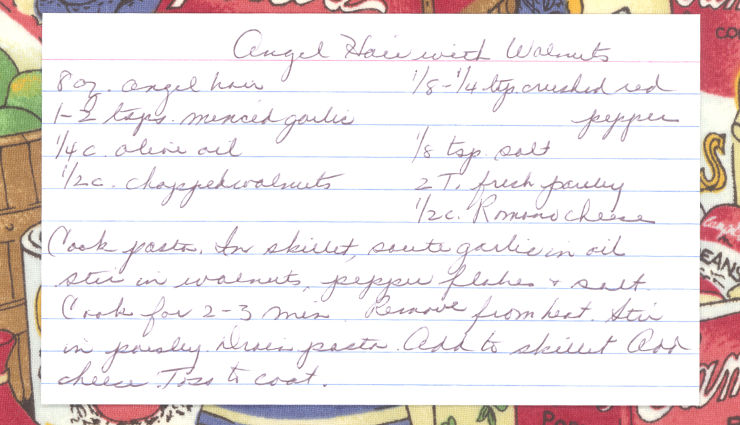 Angel Hair with Walnuts
8 oz. angel hair
1-2 tsps. menced garlic
1/4 c. olive oil
1/2 c. chopped walnuts
1/8-1/4 tsp crushed red
pepper
1/8 tsp. salt
2 T. fresh parsley
1/2 c. Romano cheese
Cook pasta. In skillet, saute garlic in oil
stir in walnuts, pepper flakes + salt.
Cook for 2-3 min Remove from heat. Stir
in parsley Drain pasta. Add to skillet Add
cheese. Toss to coat.
EANS